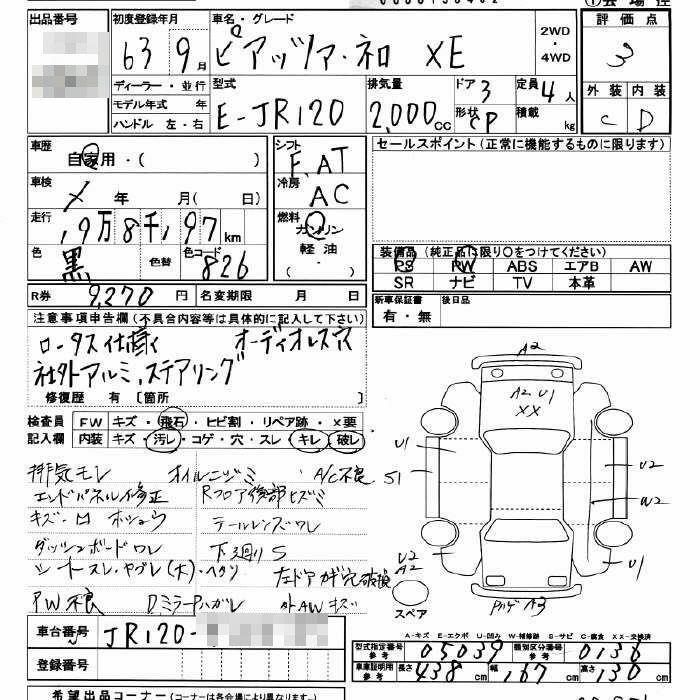 出品番号 初度登録年月 車名・グレード ① 会場控
63 9月 ピアッツァ・ネロ XE 2WD・4WD
評価点
3
ディーラー・並行
モデル年式 年
ハンドル 左・右
型式 E-JR120
排気量 2,000cc
ドア 3
形状 CP
定員 4人
積載 kg
外装 内装
C D
車歴 自家用・( )
シフト F.AT
セールスポイント(正常に機能するものに限ります)
車検 年 月( 日)
冷房 AC
走行 9万8千,97km
燃料 ガソリン
軽油
( ・ )
色 黒 色替 色コード 826
装備品(純正品に限り○をつけてください)
PS PW ABS エアB AW
SR ナビ TV 本革
R券 9,270円 名変期限 月 日
新車保証書 有・無 後日品
注意事項申告欄(不具合内容等は具体的に記入して下さい)
ロータス仕様 オーディオレス
社外アルミ、ステアリング
修復歴 有 [箇所 ]
検査員記入欄
FW キズ・飛石・ヒビ割・リペア跡・×要
内装 キズ・汚レ・コゲ・穴・スレ・キレ・破レ
排気モレ オイルニジミ A/C不良
エンドパネル修正 Rフロア後部ヒズミ
キズ・凹 ホシュウ テールレンズワレ
ダッシュボードワレ 下廻りS
シートスレ・ヤブレ(大)・ヘタリ 左ドアカギ穴破損
PW不良 DミラーハガレA 外AWキズ
A2
A2 U1
XX
U1
S1
U2
W2
U2
A2
U1
A3
スペア
車台番号 JR120-
登録番号
A-キズ E-エクボ U-凹み W-補修跡 S-サビ C-腐食 XX-交換済
型式指定番号 参考 05039 類別区分番号 参考 0136
車庫証明用 参考 長さ 438cm 幅 167cm 高さ 130cm
希望出品コーナー(コーナーは各会場により異なります。)